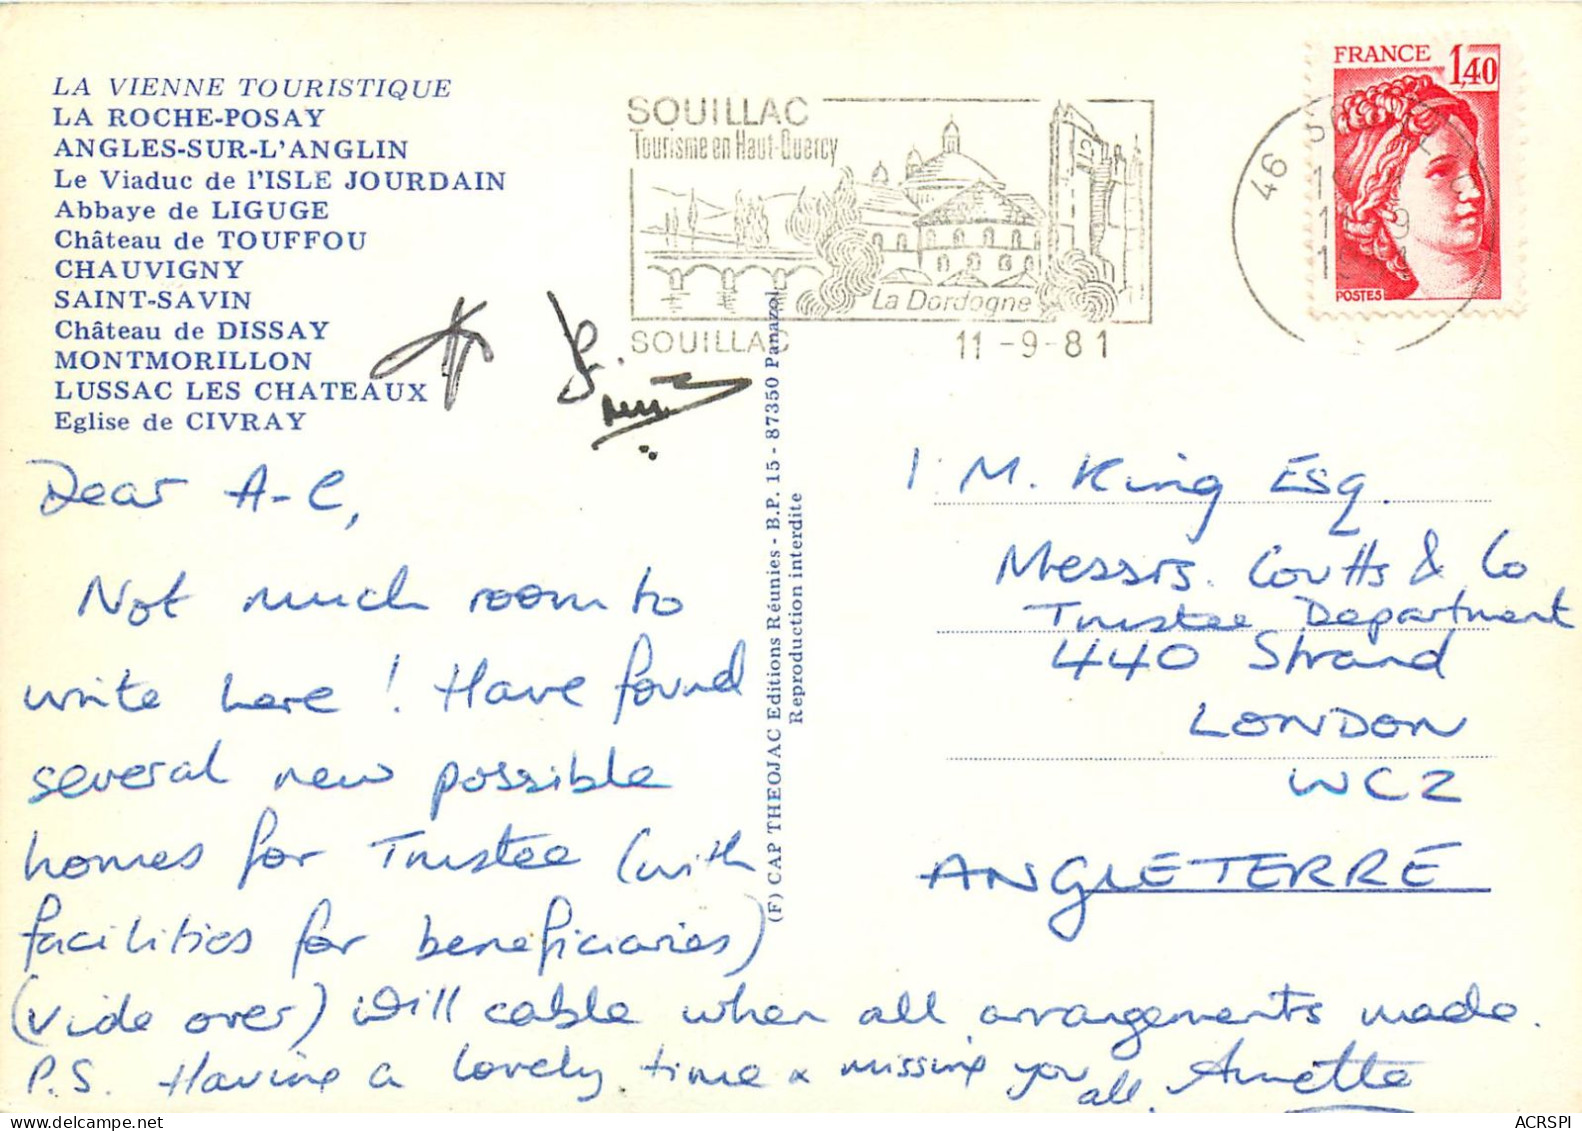 LA VIENNE TOURISTIQUE
LA ROCHE-POSAY
ANGLES-SUR-L'ANGLIN
Le Viaduc de l'ISLE JOURDAIN
Abbaye de LIGUGE
Château de TOUFFOU
CHAUVIGNY
SAINT-SAVIN
Château de DISSAY
MONTMORILLON
LUSSAC LES CHATEAUX
Eglise de CIVRAY
SOUILLAC
Tourisme en Haut-Quercy
La Dordogne
SOUILLAC
11-9-81
46
FRANCE 1,40
POSTES
Dear A-C,
Not much room to
write here! Have found
several new possible
homes for Trustee (with
facilities for beneficiaries)
(vide over) Will cable when all arrangements made.
P.S. Having a lovely time & missing you all. Annette
(F) CAP THEOJAC Editions Réunies - B.P. 15 - 87350 Panazol
Reproduction interdite
I. M. King Esq.
Messrs. Coutts & Co
Trustee Department
440 Strand
LONDON
WC2
ANGLETERRE
ACRSPI